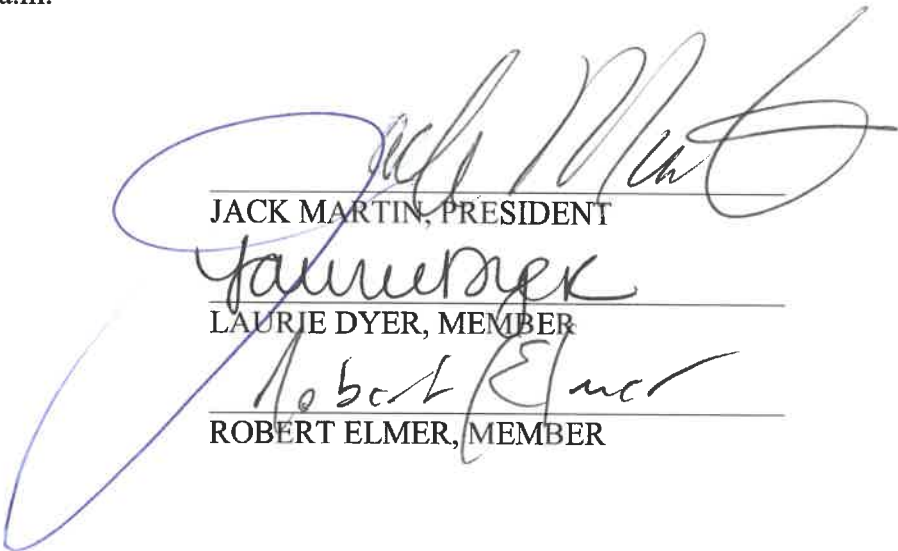 a.m.
Jack Mart
JACK MARTIN, PRESIDENT
Laurie Dyer
LAURIE DYER, MEMBER
Robert Elmer
ROBERT ELMER, MEMBER